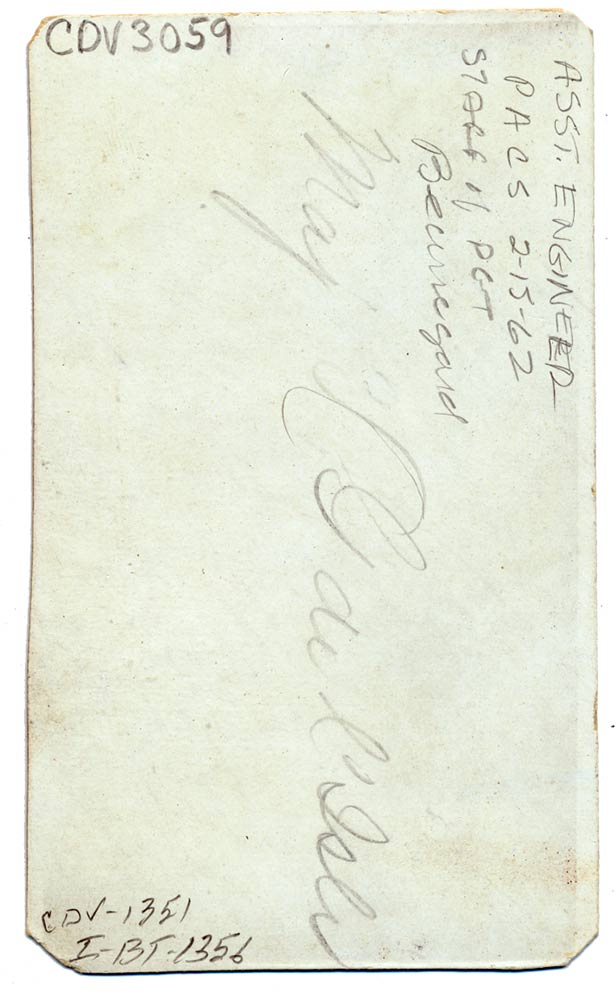 CDV3059
ASST. ENGINEER
PACS 2-15-62
STAFF of PGT
Beauregard
Maj de l'Isle
CDV-1351
I-BT-1356